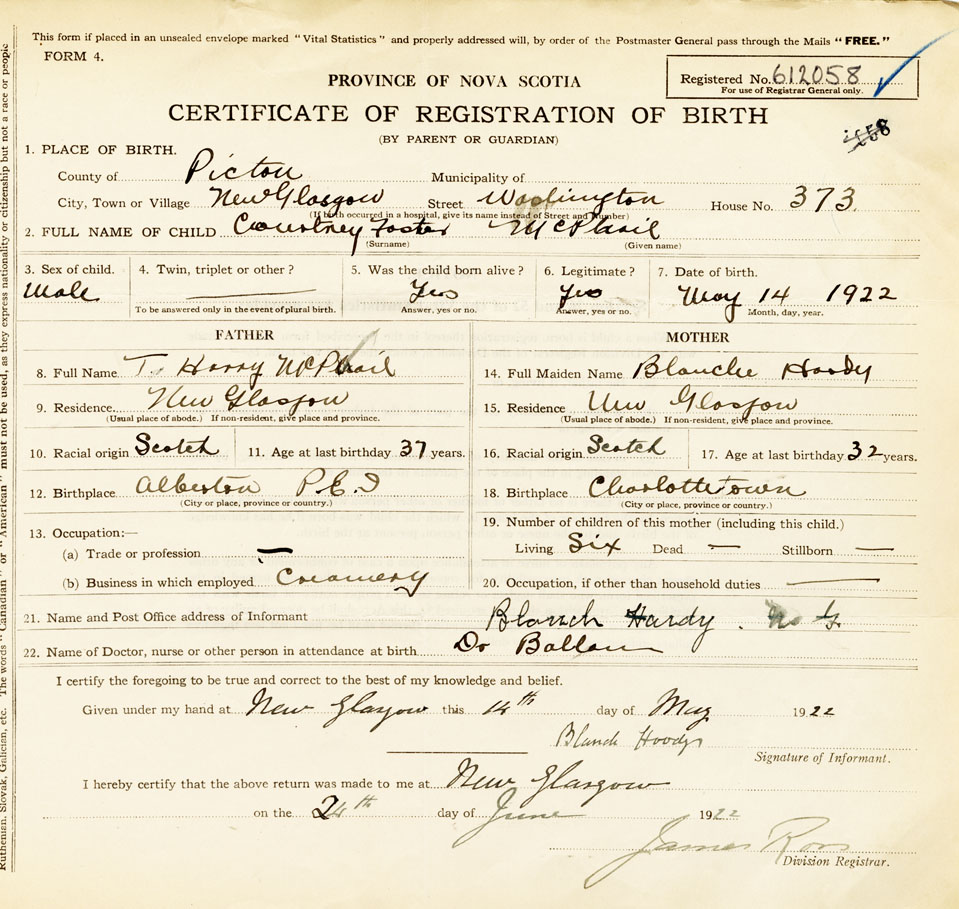 This form if placed in an unsealed envelope marked "Vital Statistics" and properly addressed will, by order of the Postmaster General pass through the Mails "FREE."
FORM 4.
Registered No. 612058
For use of Registrar General only.
PROVINCE OF NOVA SCOTIA
CERTIFICATE OF REGISTRATION OF BIRTH
(BY PARENT OR GUARDIAN)
1. PLACE OF BIRTH.
County of Picton Municipality of
City, Town or Village New Glasgow Street Washington House No. 373
(If birth occurred in a hospital, give its name instead of Street and Number)
2. FULL NAME OF CHILD Courtney Foster McPhail
(Surname) (Given name)
3. Sex of child. 4. Twin, triplet or other? 5. Was the child born alive? 6. Legitimate? 7. Date of birth.
Male Yes Yes May 14 1922
To be answered only in the event of plural birth. Answer, yes or no. Answer, yes or no. Month, day, year.
FATHER MOTHER
8. Full Name T. Harry McPhail 14. Full Maiden Name Blanche Hardy
9. Residence New Glasgow 15. Residence New Glasgow
(Usual place of abode.) If non-resident, give place and province. (Usual place of abode.) If non-resident, give place and province.
10. Racial origin Scotch 11. Age at last birthday 37 years. 16. Racial origin Scotch 17. Age at last birthday 32 years.
12. Birthplace Alberton P.E.I 18. Birthplace Charlottetown
(City or place, province or country.) (City or place, province or country.)
13. Occupation:— 19. Number of children of this mother (including this child.)
(a) Trade or profession — Living Six Dead — Stillborn —
(b) Business in which employed Creamery 20. Occupation, if other than household duties —
21. Name and Post Office address of Informant Blanch Hardy. N G
22. Name of Doctor, nurse or other person in attendance at birth Dr
I certify the foregoing to be true and correct to the best of my knowledge and belief.
Given under my hand at New Glasgow this 14th day of May 1922
Blanch Hardy
Signature of Informant.
I hereby certify that the above return was made to me at New Glasgow
on the 24th day of June 1922
James Ross
Division Registrar.
Ruthenian, Slovak, Galician, etc. The words "Canadian" or "American" must not be used, as they express nationality or citizenship but not a race or people